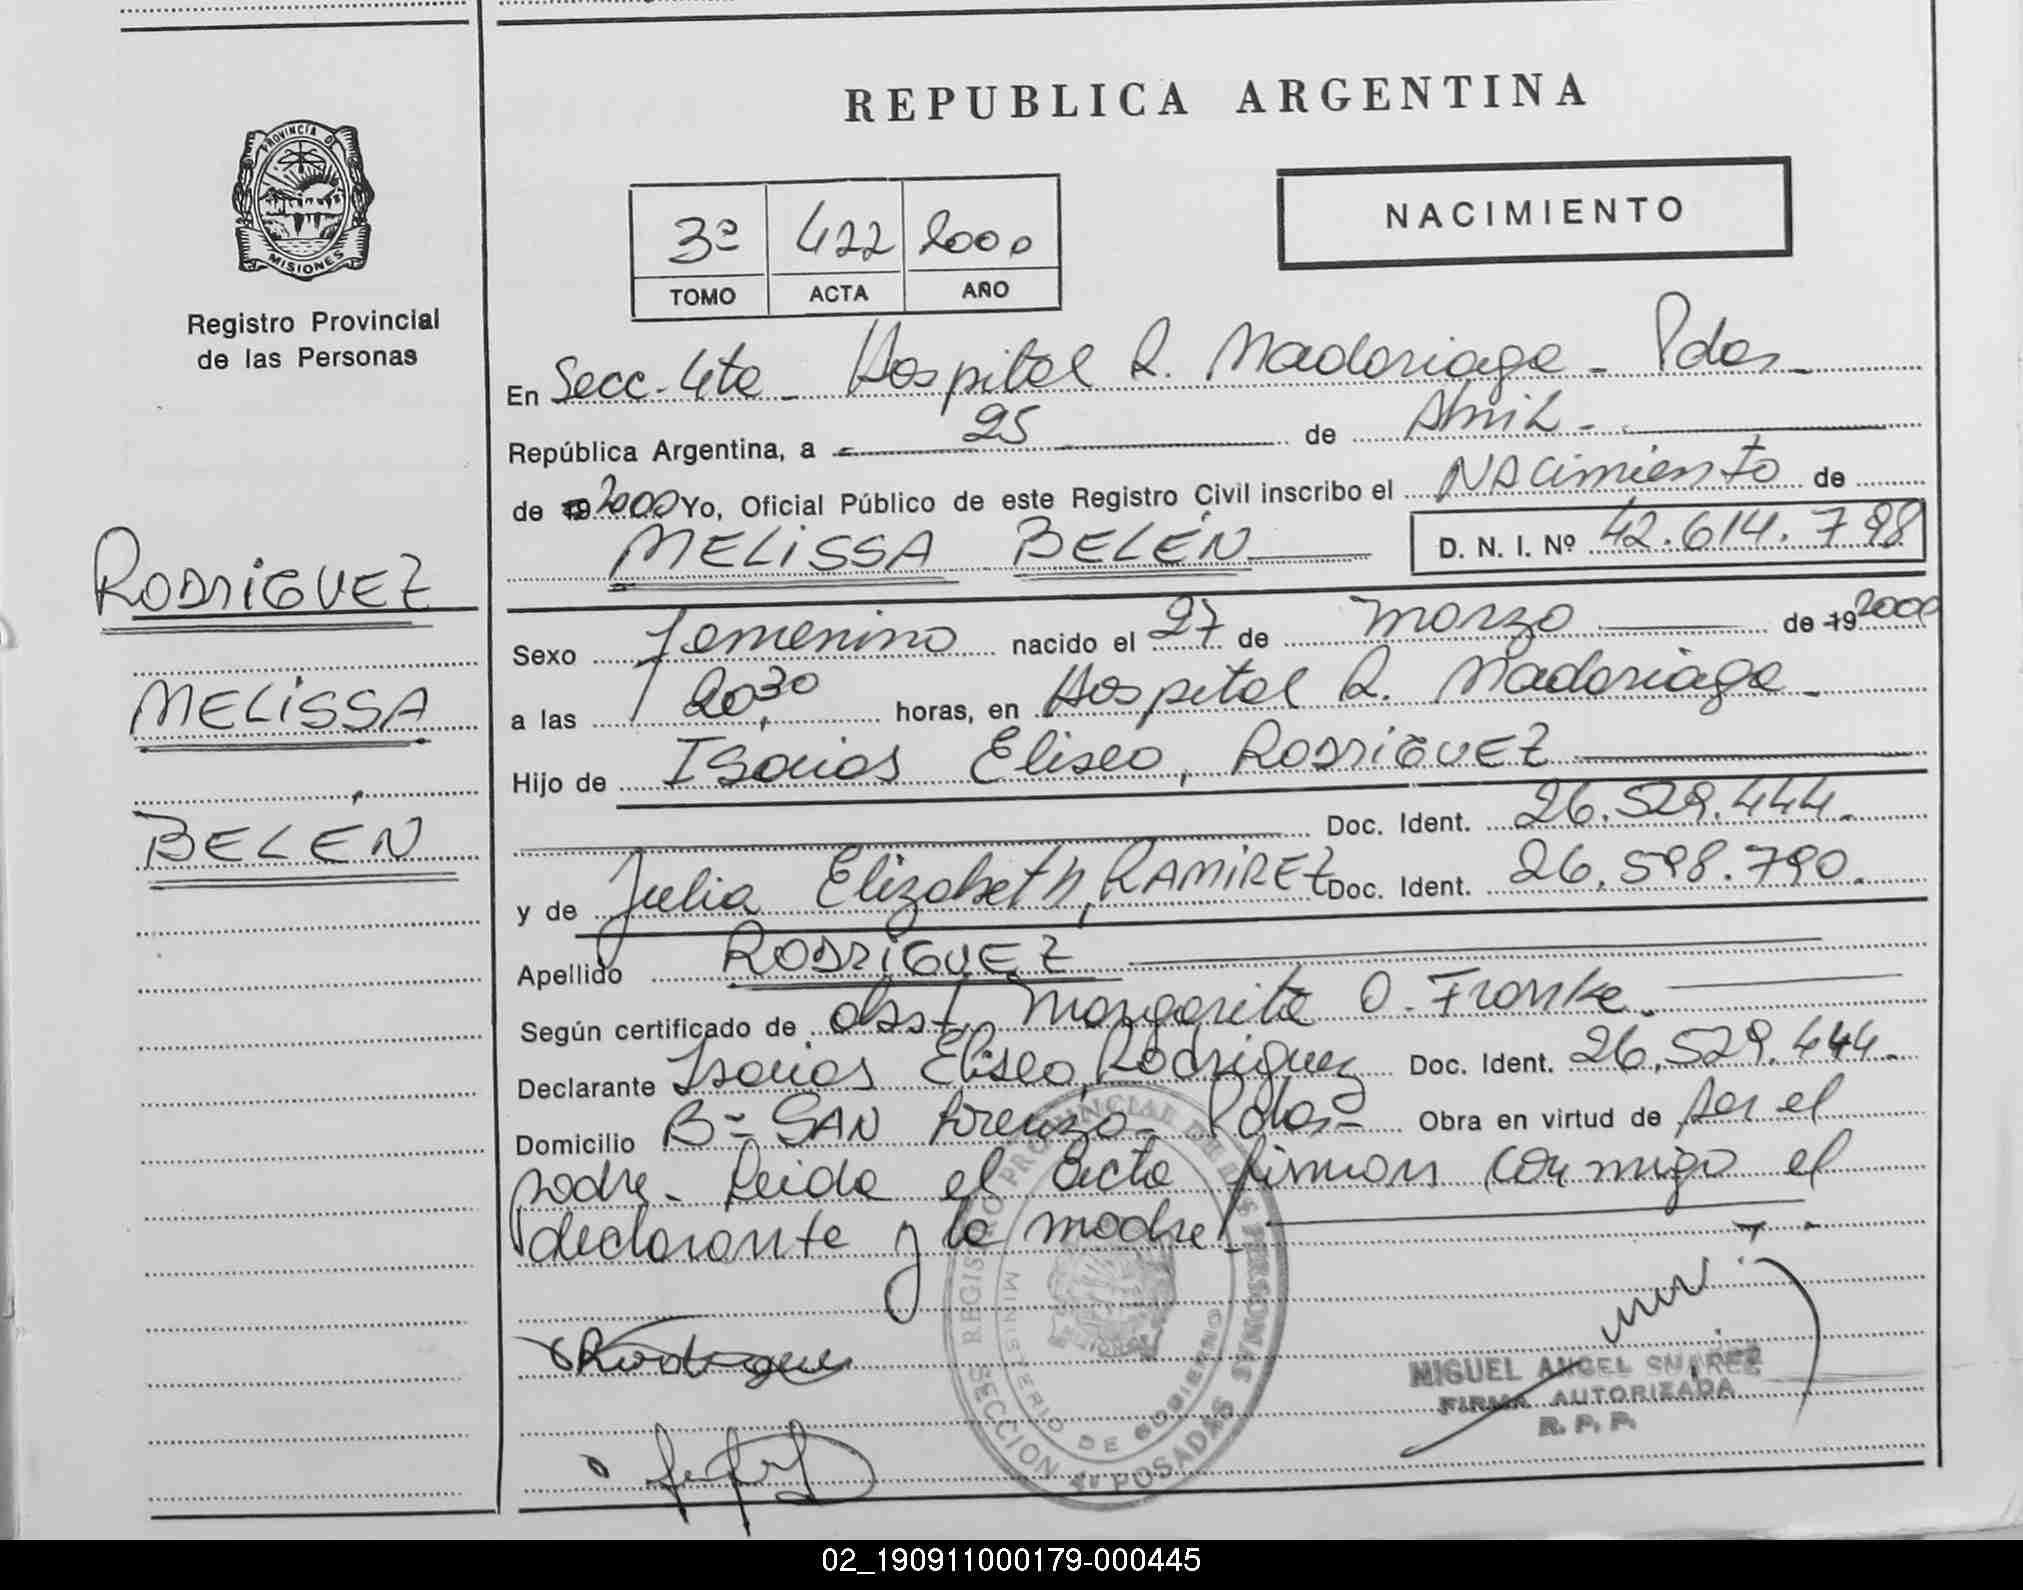 REPUBLICA ARGENTINA
PROVINCIA D
MISIONES
Registro Provincial
de las Personas
NACIMIENTO
3º 422 2000
TOMO ACTA AÑO
En Secc. 4ta - Hospital R. Madariaga - Pdas -
República Argentina, a 25 de Abril -
de 19 2000 Yo, Oficial Público de este Registro Civil inscribo el NACimiento de
MELiSSA BELÉN D. N. I. Nº 42.614.798
RODRiGUEZ
MELiSSA
BELÉN
Sexo femenino nacido el 27 de marzo de 19 2000
a las 20,30 horas, en Hospital R. Madariaga -
Hijo de Isaias Eliseo, RODRiGUEZ
Doc. Ident. 26.529.444.
y de Julia Elizabeth, RAMiREZ Doc. Ident. 26.598.790.
Apellido RODRiGUEZ
Según certificado de Obst. Margarita O. Franke.
Declarante Isaias Eliseo Rodriguez Doc. Ident. 26.529.444.
Domicilio Bº SAN Lorenzo - Pdas - Obra en virtud de ser el
padre. Leida el acta firman conmigo el
declarante y la madre.
REGISTRO PROVINCIAL DE LAS PERSONAS
MINISTERIO DE GOBIERNO
SECCION 4ª POSADAS
Rodrigue
MIGUEL ANGEL SUAREZ
FIRMA AUTORIZADA
R. P. P.
02_190911000179-000445